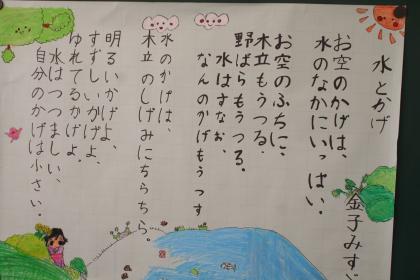 水とかげ
金子みすゞ
お空のかげは、
水のなかにいっぱい。
お空のふちに、
木立もうつる、
野ばらもうつる。
水はすなお、
なんのかげもうつす
水のかげは、
木立のしげみにちらちら。
明るいかげよ、
すずしいかげよ、
ゆれてるかげよ。
水はつつましい、
自分のかげは小さい。